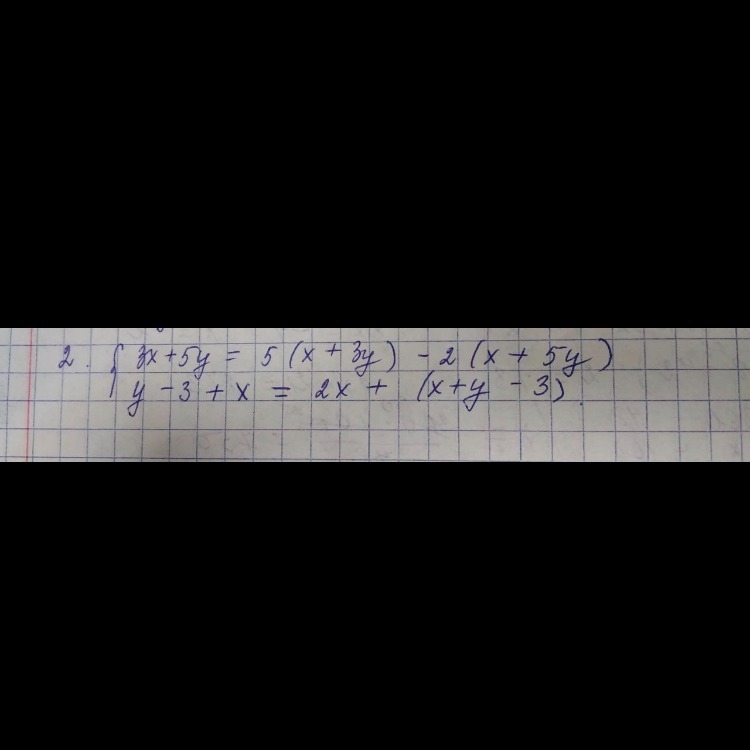 2. { 3x+5y = 5 (x + 3y) - 2 (x + 5y)
y - 3 + x = 2x + (x+y - 3).